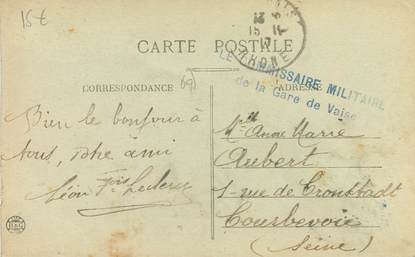 15€
CARTE POSTALE
RHONE
LE COMMISSAIRE MILITAIRE
de la Gare de Vaise
CORRESPONDANCE
(69)
ADRESSE
Bien le bonjour à
tous,
ami
Léon Leclerc
Mlle Anne Marie
Aubert
1 rue de Cronstadt
Courbevoie
(Seine)